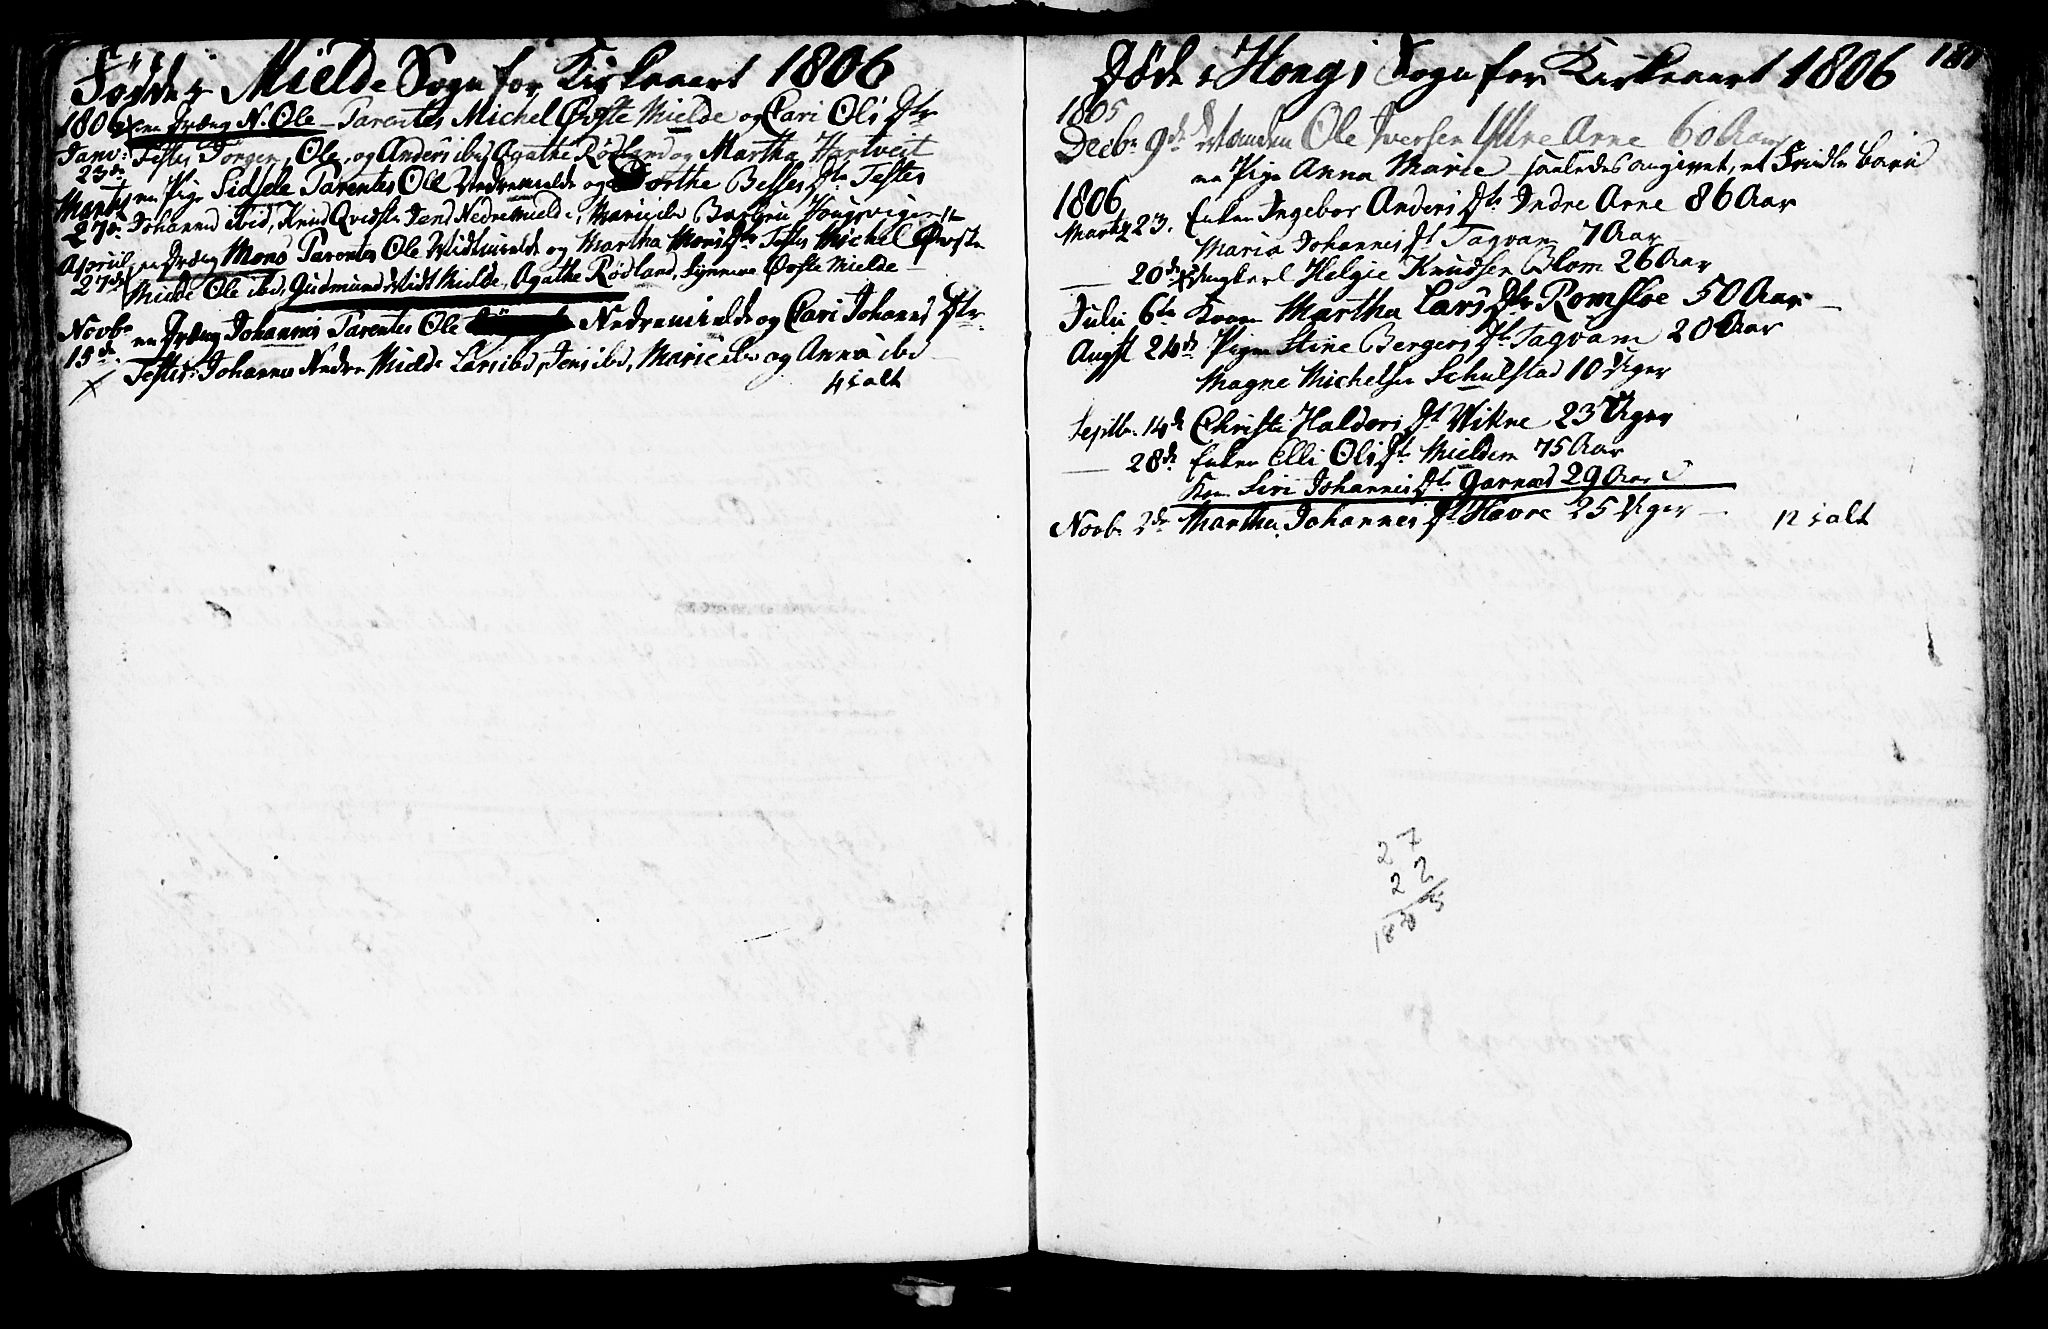 Fødde i Mielde Sogn for Kirkeaaret 1806
1806 en Dreng N. Ole - Parentes Michel Øvste Mielde og Cari Olis Dtr
Janv: Testes Torger, Ole, og Anders ibid, Agathe Rødland og Martha Hertveit
23de
Marty en Pige Sidsele Parentes Ole Nedremielde og Dorthe Besses Dtr Testes
27de Johannes ibid, Knud Qvidste Jens Nedremielde, Marie ibd
April en Dreng Mons Parentes Ole Midtmielde og Martha Mons Dtr Testes Michel Øvste
27de Mielde Ole ibd, Gudmund Midt Mielde, Agathe Rødland, Synneve Øvste Mielde -
Novbr en Dreng Johannes Parentes Ole Nedremielde og Cari Johanes Dtr
15de Testes: Johannes Nedre Mielde Lars ibd, Jens ibd, Marie ibd og Anna ibd
4 i alt
Døde i Hougs Sogn for Kirkeaaret 1806
181
1805
Decbr 9de Manden Ole Iversen Ytre Arne 60 Aar
en Pige Anna Marie - saaledes angivet, et Spædt barn
1806
Marty 23. Enken Ingebor Anders Dtr Indre Arne 86 Aar
Maria Johannis Dt Tagvam 7 Aar
- 20de Ungkarl Helgie Knudsen Blom 26 Aar
Julii 6te Konen Martha Lars Dtr Romsloe 50 Aar -
Augst 24de Pigen Stine Bergers Dt Tagvam 20 Aar
Magne Michelsen Schulstad 10 Uger
Septbr. 14de Christi Haldors Dt Wikne 23 Uger
- 28de Enken Elli Olis Dtr Mieldem 75 Aar
Kon. Siri Johannis Dtr Garnæs 29 Aar
Novbr 2de Martha Johannes Dt Havre 25 Uger -
12 i alt
27
22
1805